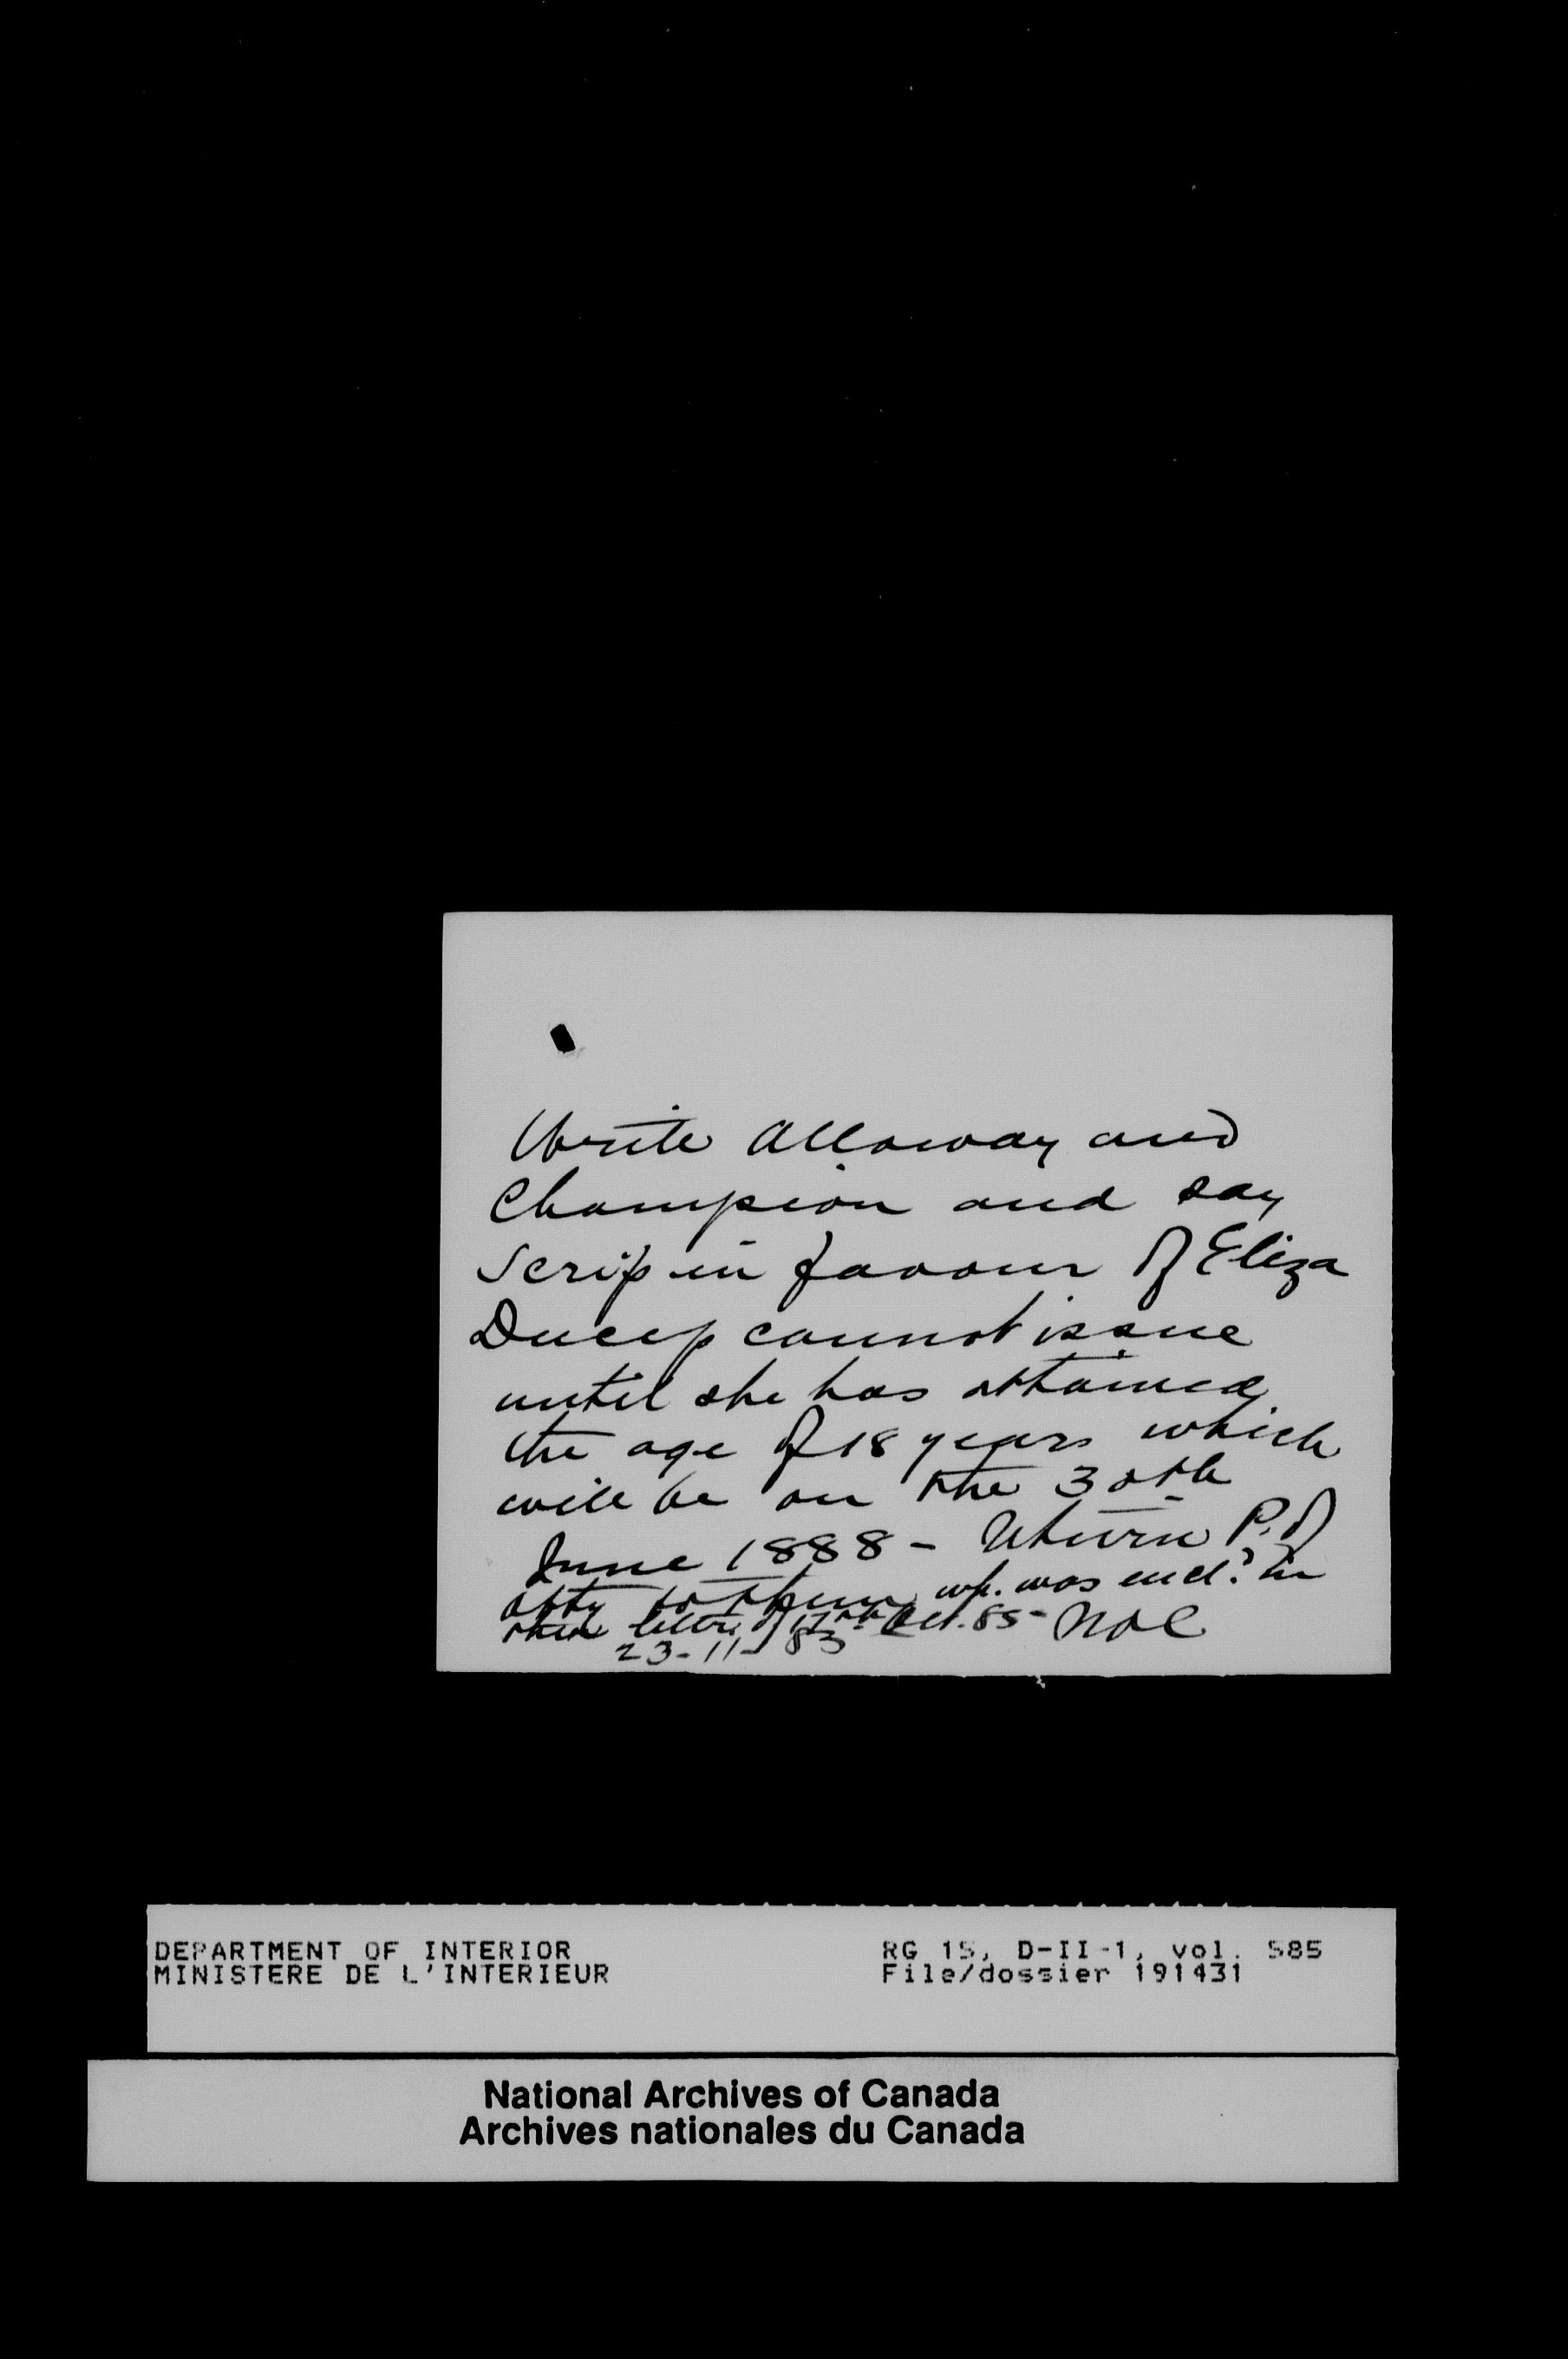 Write Alloway and
Champion and say
scrip in favour of Eliza
Ducep cannot issue
until she has attained
the age of 18 years which
will be on the 30th
June 1888 - Return P. of
atty to them wh. was encl? in
their letter of 17th Oct. 85 -
23-11-85
DEPARTMENT OF INTERIOR
MINISTERE DE L'INTERIEUR
RG 15, D-II-1, vol. 585
File/dossier 191431
National Archives of Canada
Archives nationales du Canada